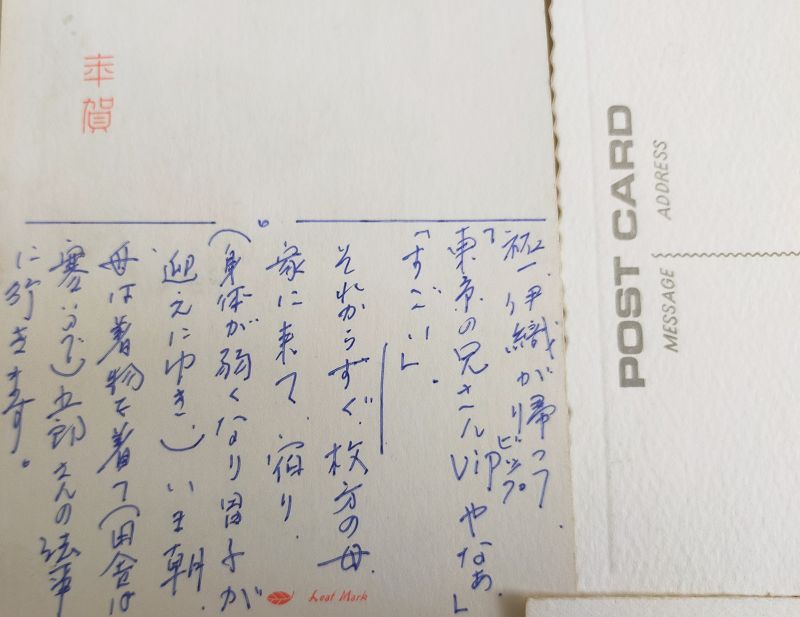 年賀
伊織が帰って
「東京の兄さんViPやなぁ」
ビップ
「すごい」
それからすぐ、枚方の母
家に来て、宿り
(身体が弱くなり
迎えにゆき、)いま朝
母は着物を着て(田舎は
寒いので)五郎さんの法事
に行きます。
Leaf Mark
POST CARD
ADDRESS
MESSAGE